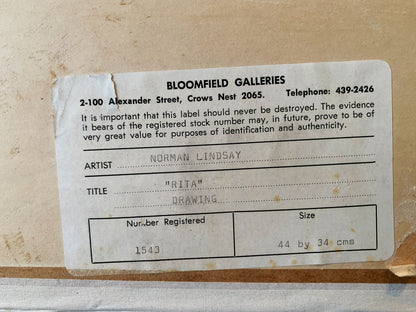 BLOOMFIELD GALLERIES
2-100 Alexander Street, Crows Nest 2065. Telephone: 439-2426
It is important that this label should never be destroyed. The evidence
it bears of the registered stock number may, in future, prove to be of
very great value for purposes of identification and authenticity.
ARTIST NORMAN LINDSAY
TITLE "RITA"
DRAWING
Number Registered Size
1543 44 by 34 cms